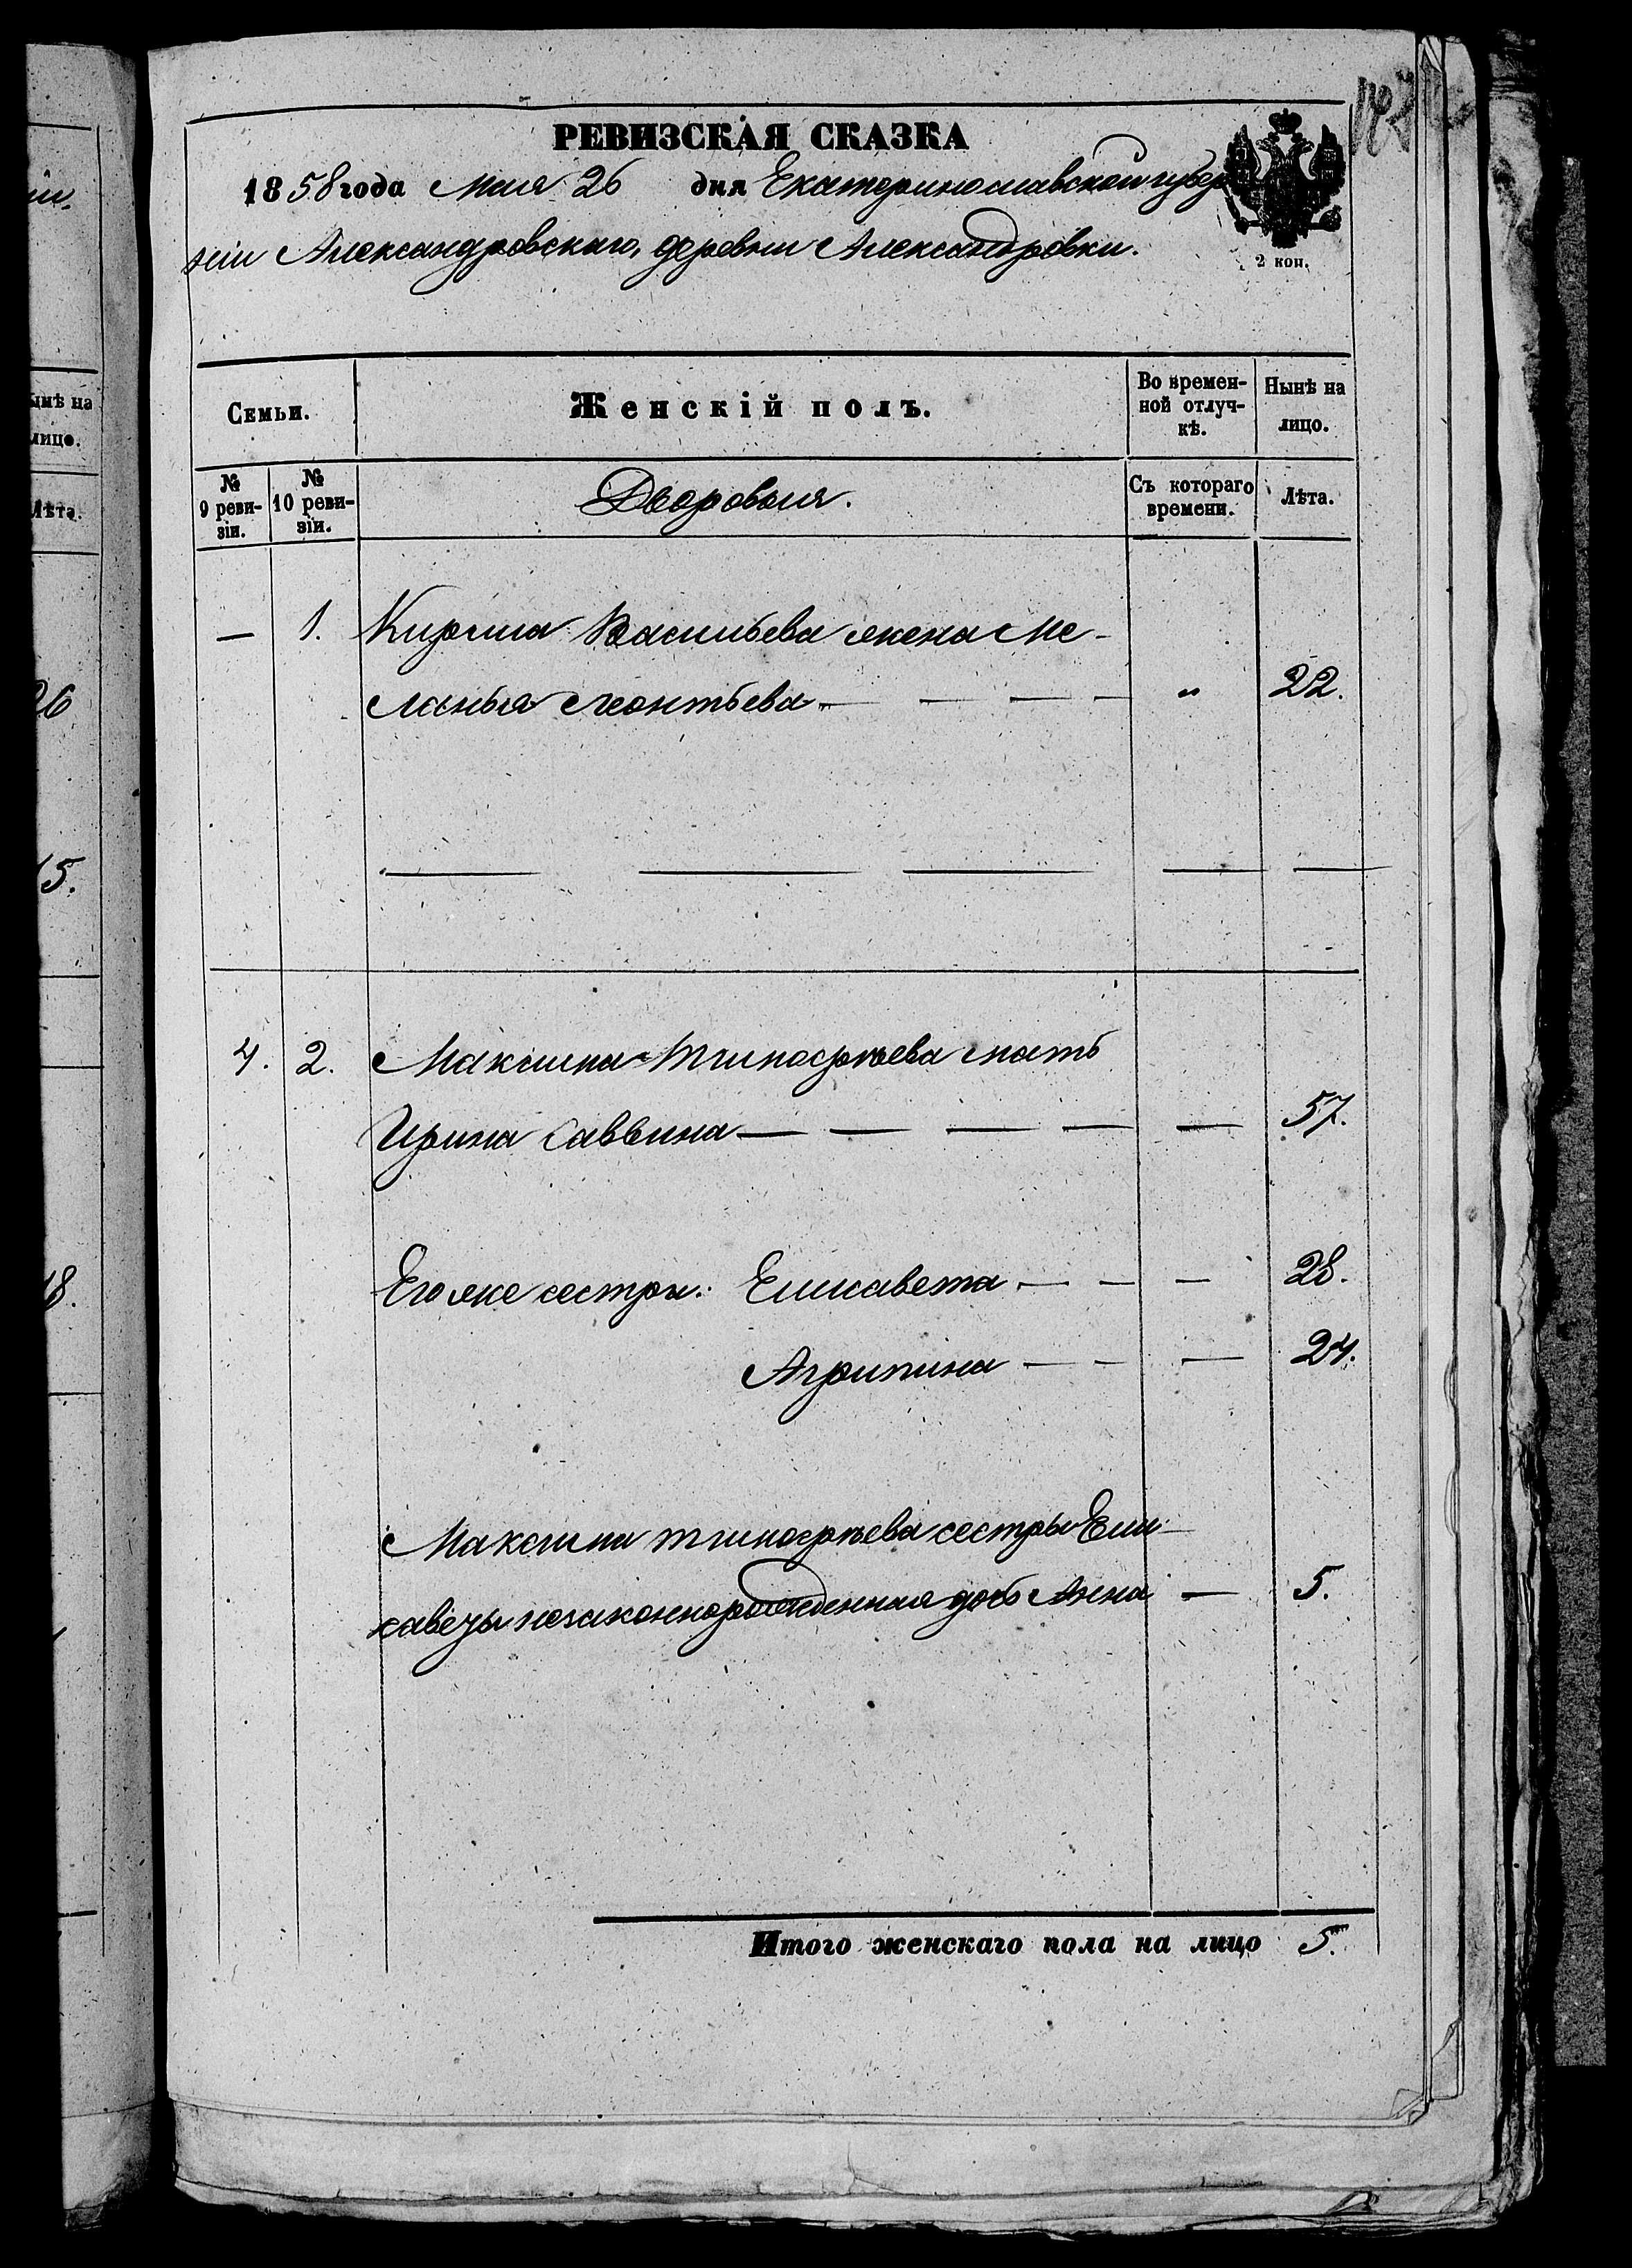 РЕВИЗСКАЯ СКАЗКА
1858 года Мая 26 дня Екатеринославской губер
ніи Александровскаго, деревни Александровки.
2 коп.
Семьи.
Женскій полъ.
Во времен-
ной отлуч-
кѣ.
Нынѣ на
лицо.
№
9 реви-
зіи.
№
10 реви-
зіи.
Дворовыя.
Съ котораго
времени.
Лѣта.
— 1. Кирила Васильева жена Ме-
ланья Леонтьева — — — „ 22.
4. 2. Максима Тимофѣева мать
Ирина Саввина — — — — — 57.
Его же сестры: Елисавета — — — 28.
Агрипина — — — 24.
Максима Тимофѣева сестры Ели-
саветы незаконнорожденная дочь Анна — 5.
Итого женскаго пола на лицо 5.
нѣ на
лицо.
Лѣта.
26
15.
18.